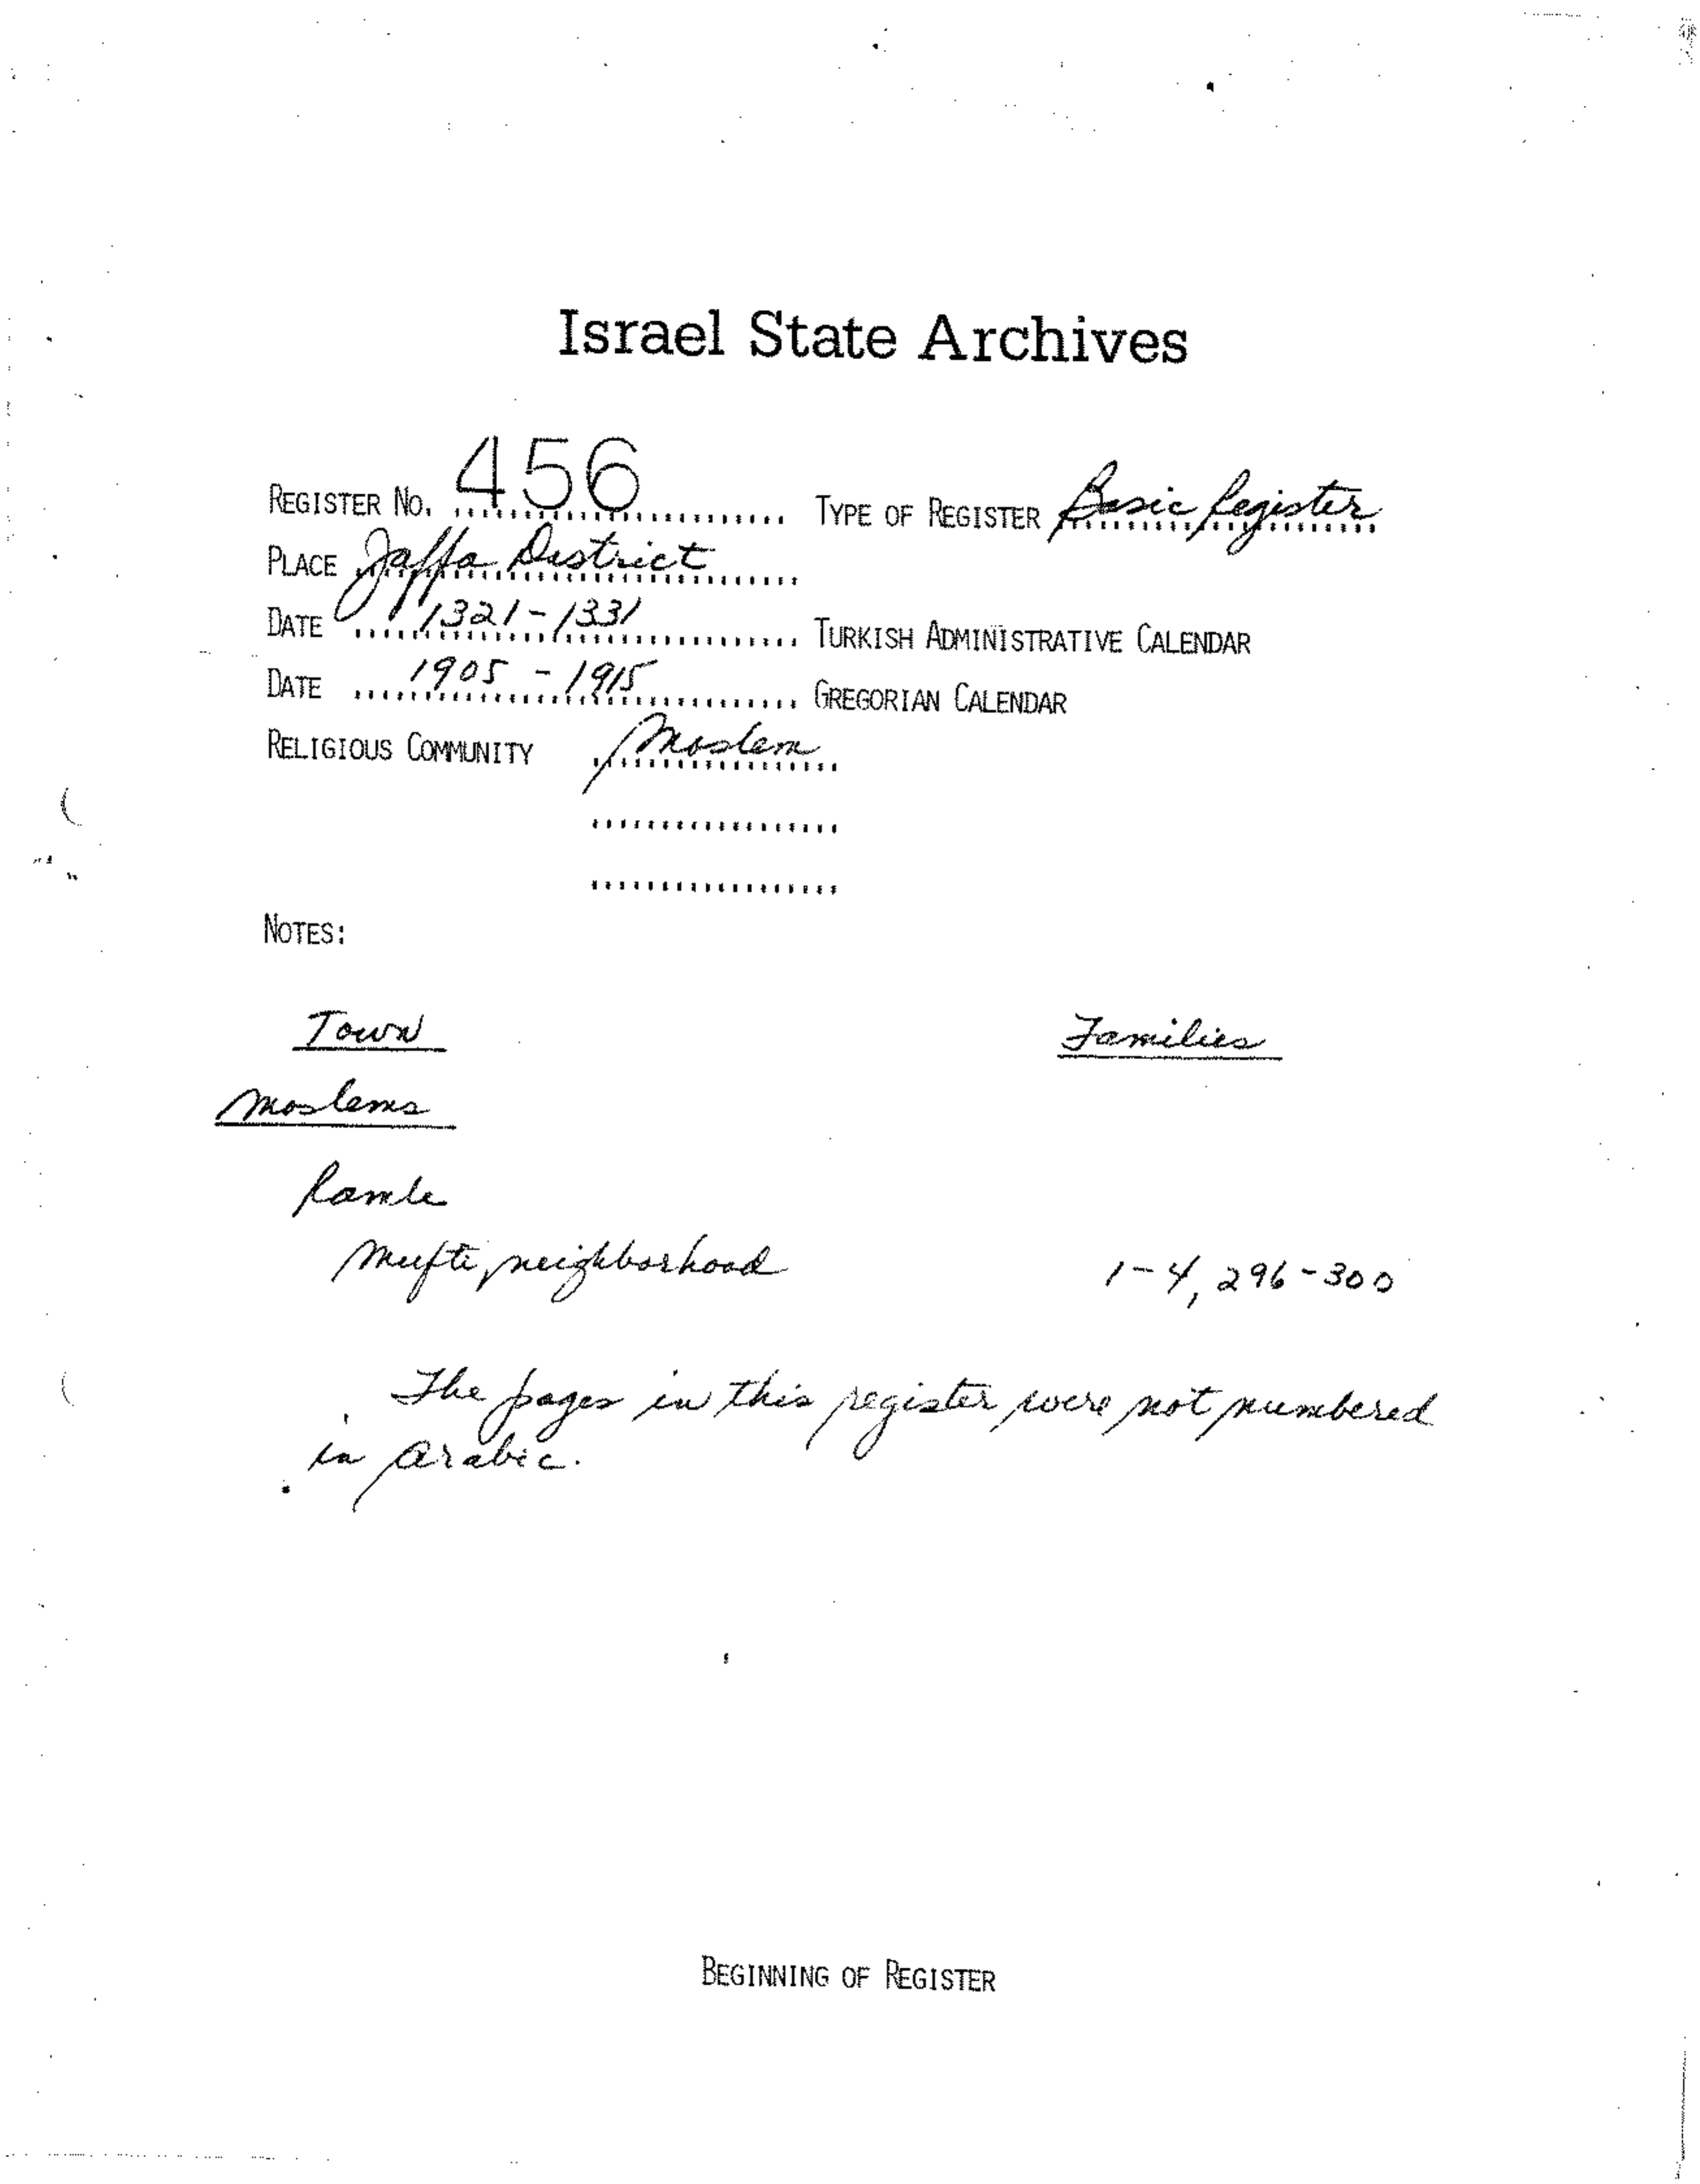 Israel State Archives
REGISTER NO. 456 TYPE OF REGISTER Basic Register
PLACE Jaffa District
DATE 1321-1331 TURKISH ADMINISTRATIVE CALENDAR
DATE 1905 - 1915 GREGORIAN CALENDAR
RELIGIOUS COMMUNITY Moslem
NOTES:
Town Families
Moslems
Ramle
Mufti neighborhood 1-4, 296-300
The pages in this register were not numbered
in Arabic.
BEGINNING OF REGISTER